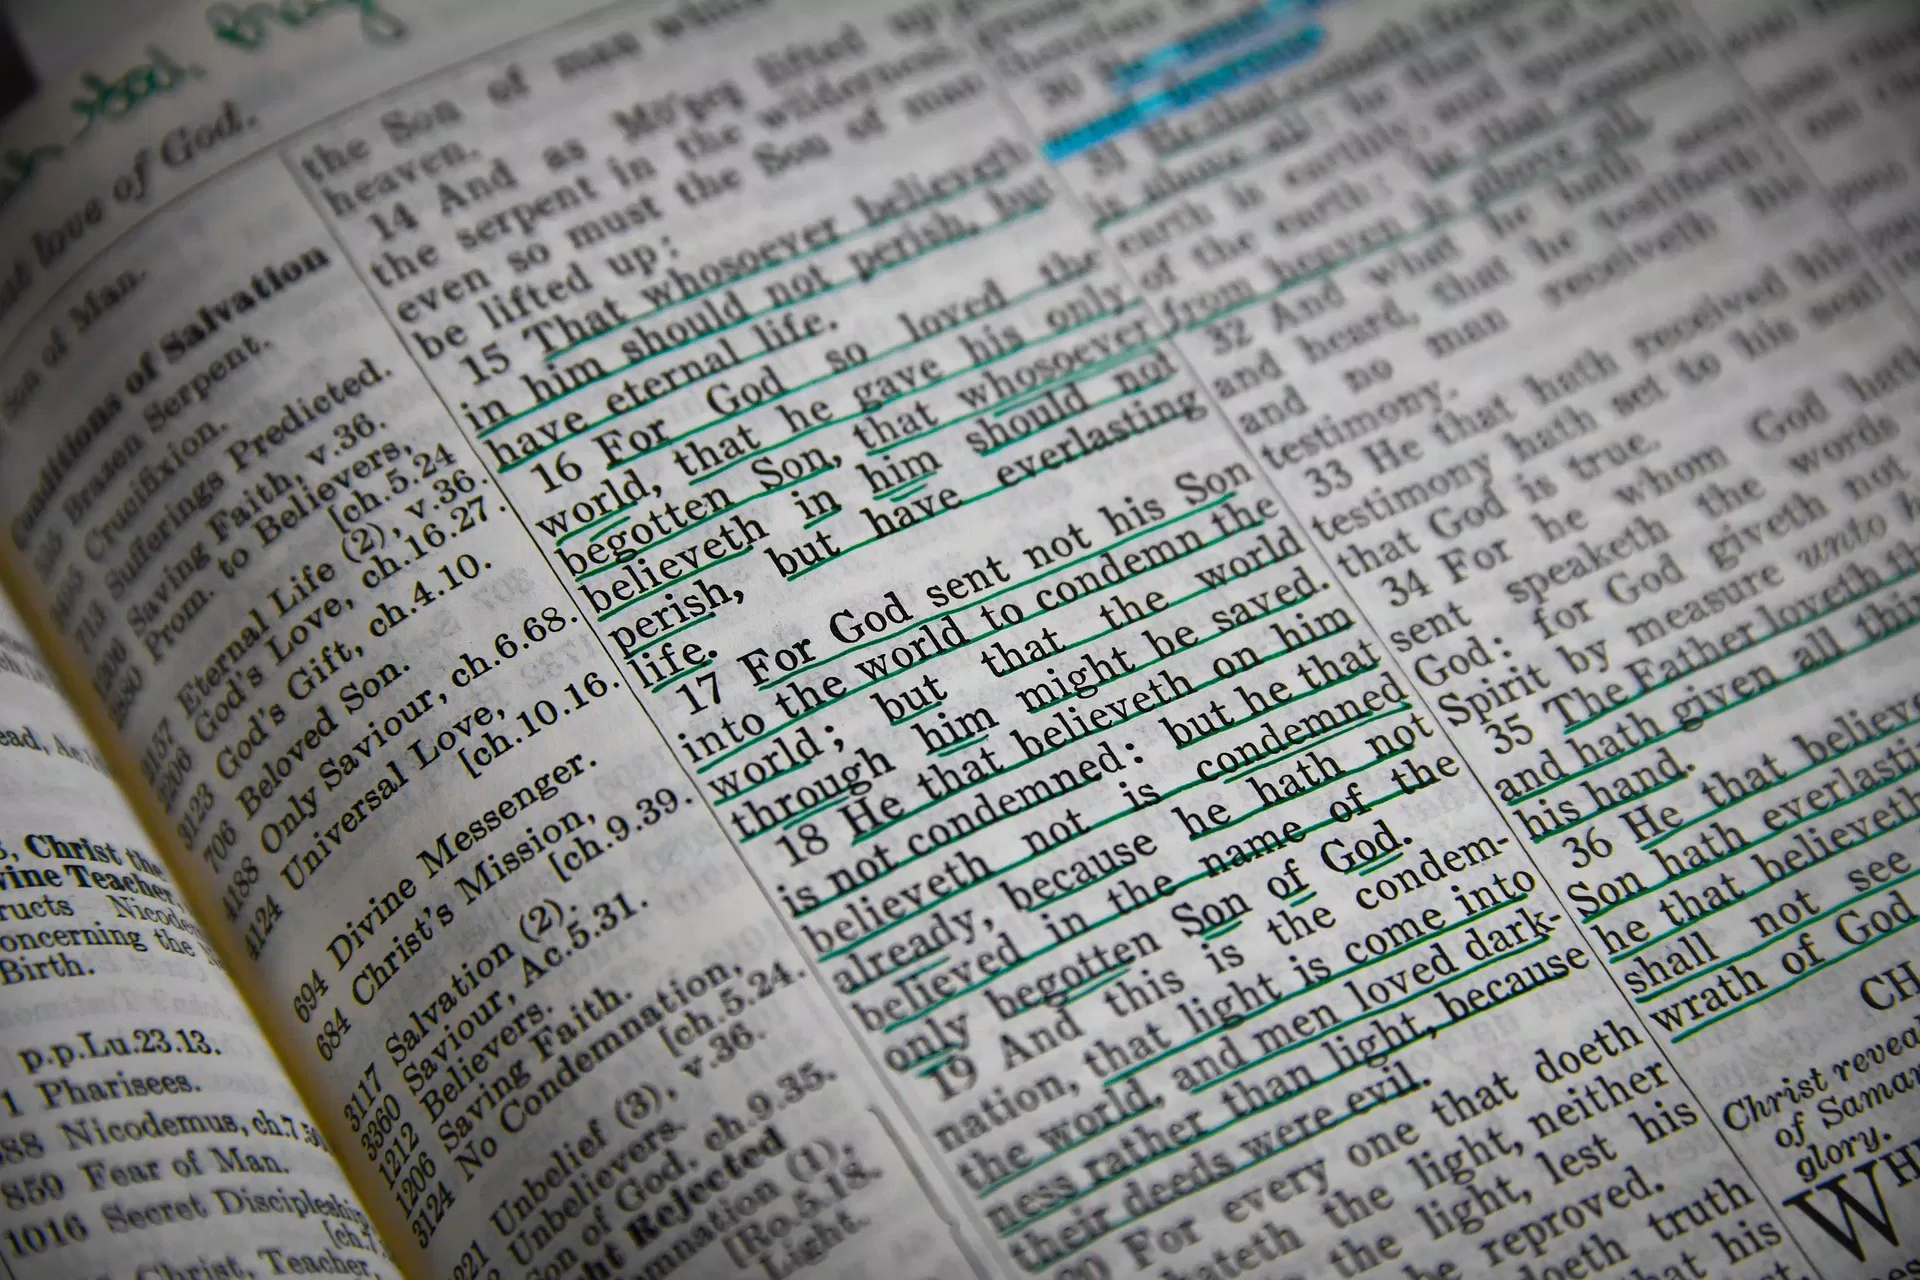 love of God.
Son of Man.
Conditions of Salvation
Brazen Serpent.
Crucifixion.
713 Sufferings Predicted.
1206 Saving Faith, v.36.
Prom. to Believers,
[ch.5.24
2157 Eternal Life (2), v.36.
2206 God's Love, ch.16.27.
3123 God's Gift, ch.4.10.
706 Beloved Son.
4188 Only Saviour, ch.6.68.
4124 Universal Love,
[ch.10.16.
694 Divine Messenger.
684 Christ's Mission,
[ch.9.39.
3117 Salvation (2),
3360 Saviour, Ac.5.31.
1212 Believers.
1206 Saving Faith.
3124 No Condemnation,
[ch.5.24.
Unbelief (3), v.36.
Unbelievers.
Son of God, ch.9.35.
Rejected
(1),
[Ro.5.18.
Light.
Christ the
Teacher
concerning the
Birth.
p.p.Lu.23.13.
1 Pharisees.
Nicodemus, ch.7.
859 Fear of Man.
1016 Secret Discipleship
Christ, Teacher,
the Son of man
heaven.
14 And as Mo'ses lifted up
the serpent in the wilderness
even so must the Son of man
be lifted up:
15 That whosoever believeth
in him should not perish, but
have eternal life.
16 For God so loved the
world, that he gave his only
begotten Son, that whosoever
believeth in him should not
perish, but have everlasting
life.
17 For God sent not his Son
into the world to condemn the
world; but that the world
through him might be saved.
18 He that believeth on him
is not condemned: but he that
believeth not is condemned
already, because he hath not
believed in the name of the
only begotten Son of God.
19 And this is the condem-
nation, that light is come into
the world, and men loved dark-
ness rather than light, because
their deeds were evil.
20 For every one that doeth
hateth the light, neither
the light, lest his
be reproved.
doeth truth
that his
30
31 He that cometh
is above all: he that is of the
earth is earthly, and speaketh
of the earth: he that cometh
from heaven is above all.
32 And what he hath seen
and heard, that he testifieth;
and no man receiveth his
testimony.
33 He that hath received his
testimony hath set to his seal
that God is true.
34 For he whom God hath
sent speaketh the words
God: for God giveth not
Spirit by measure unto
35 The Father loveth the
and hath given all
his hand.
36 He that
Son hath
he that believeth
shall not see
wrath of God
Christ
of
glory.